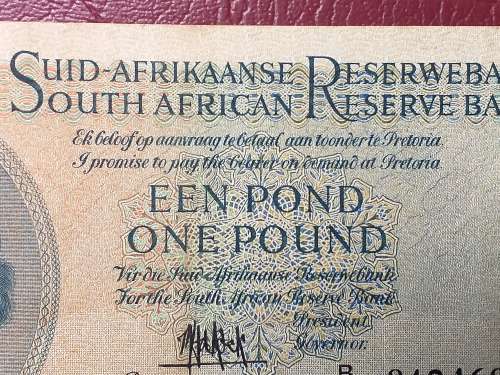 SUID-AFRIKAANSE RESERWEBA
SOUTH AFRICAN RESERVE BA
Ek beloof op aanvraag te betaal aan toonder te Pretoria
I promise to pay the bearer on demand at Pretoria
EEN POND
ONE POUND
Vir die Suid-Afrikaanse Reserwebank
For the South African Reserve Bank
President
Governor.
B